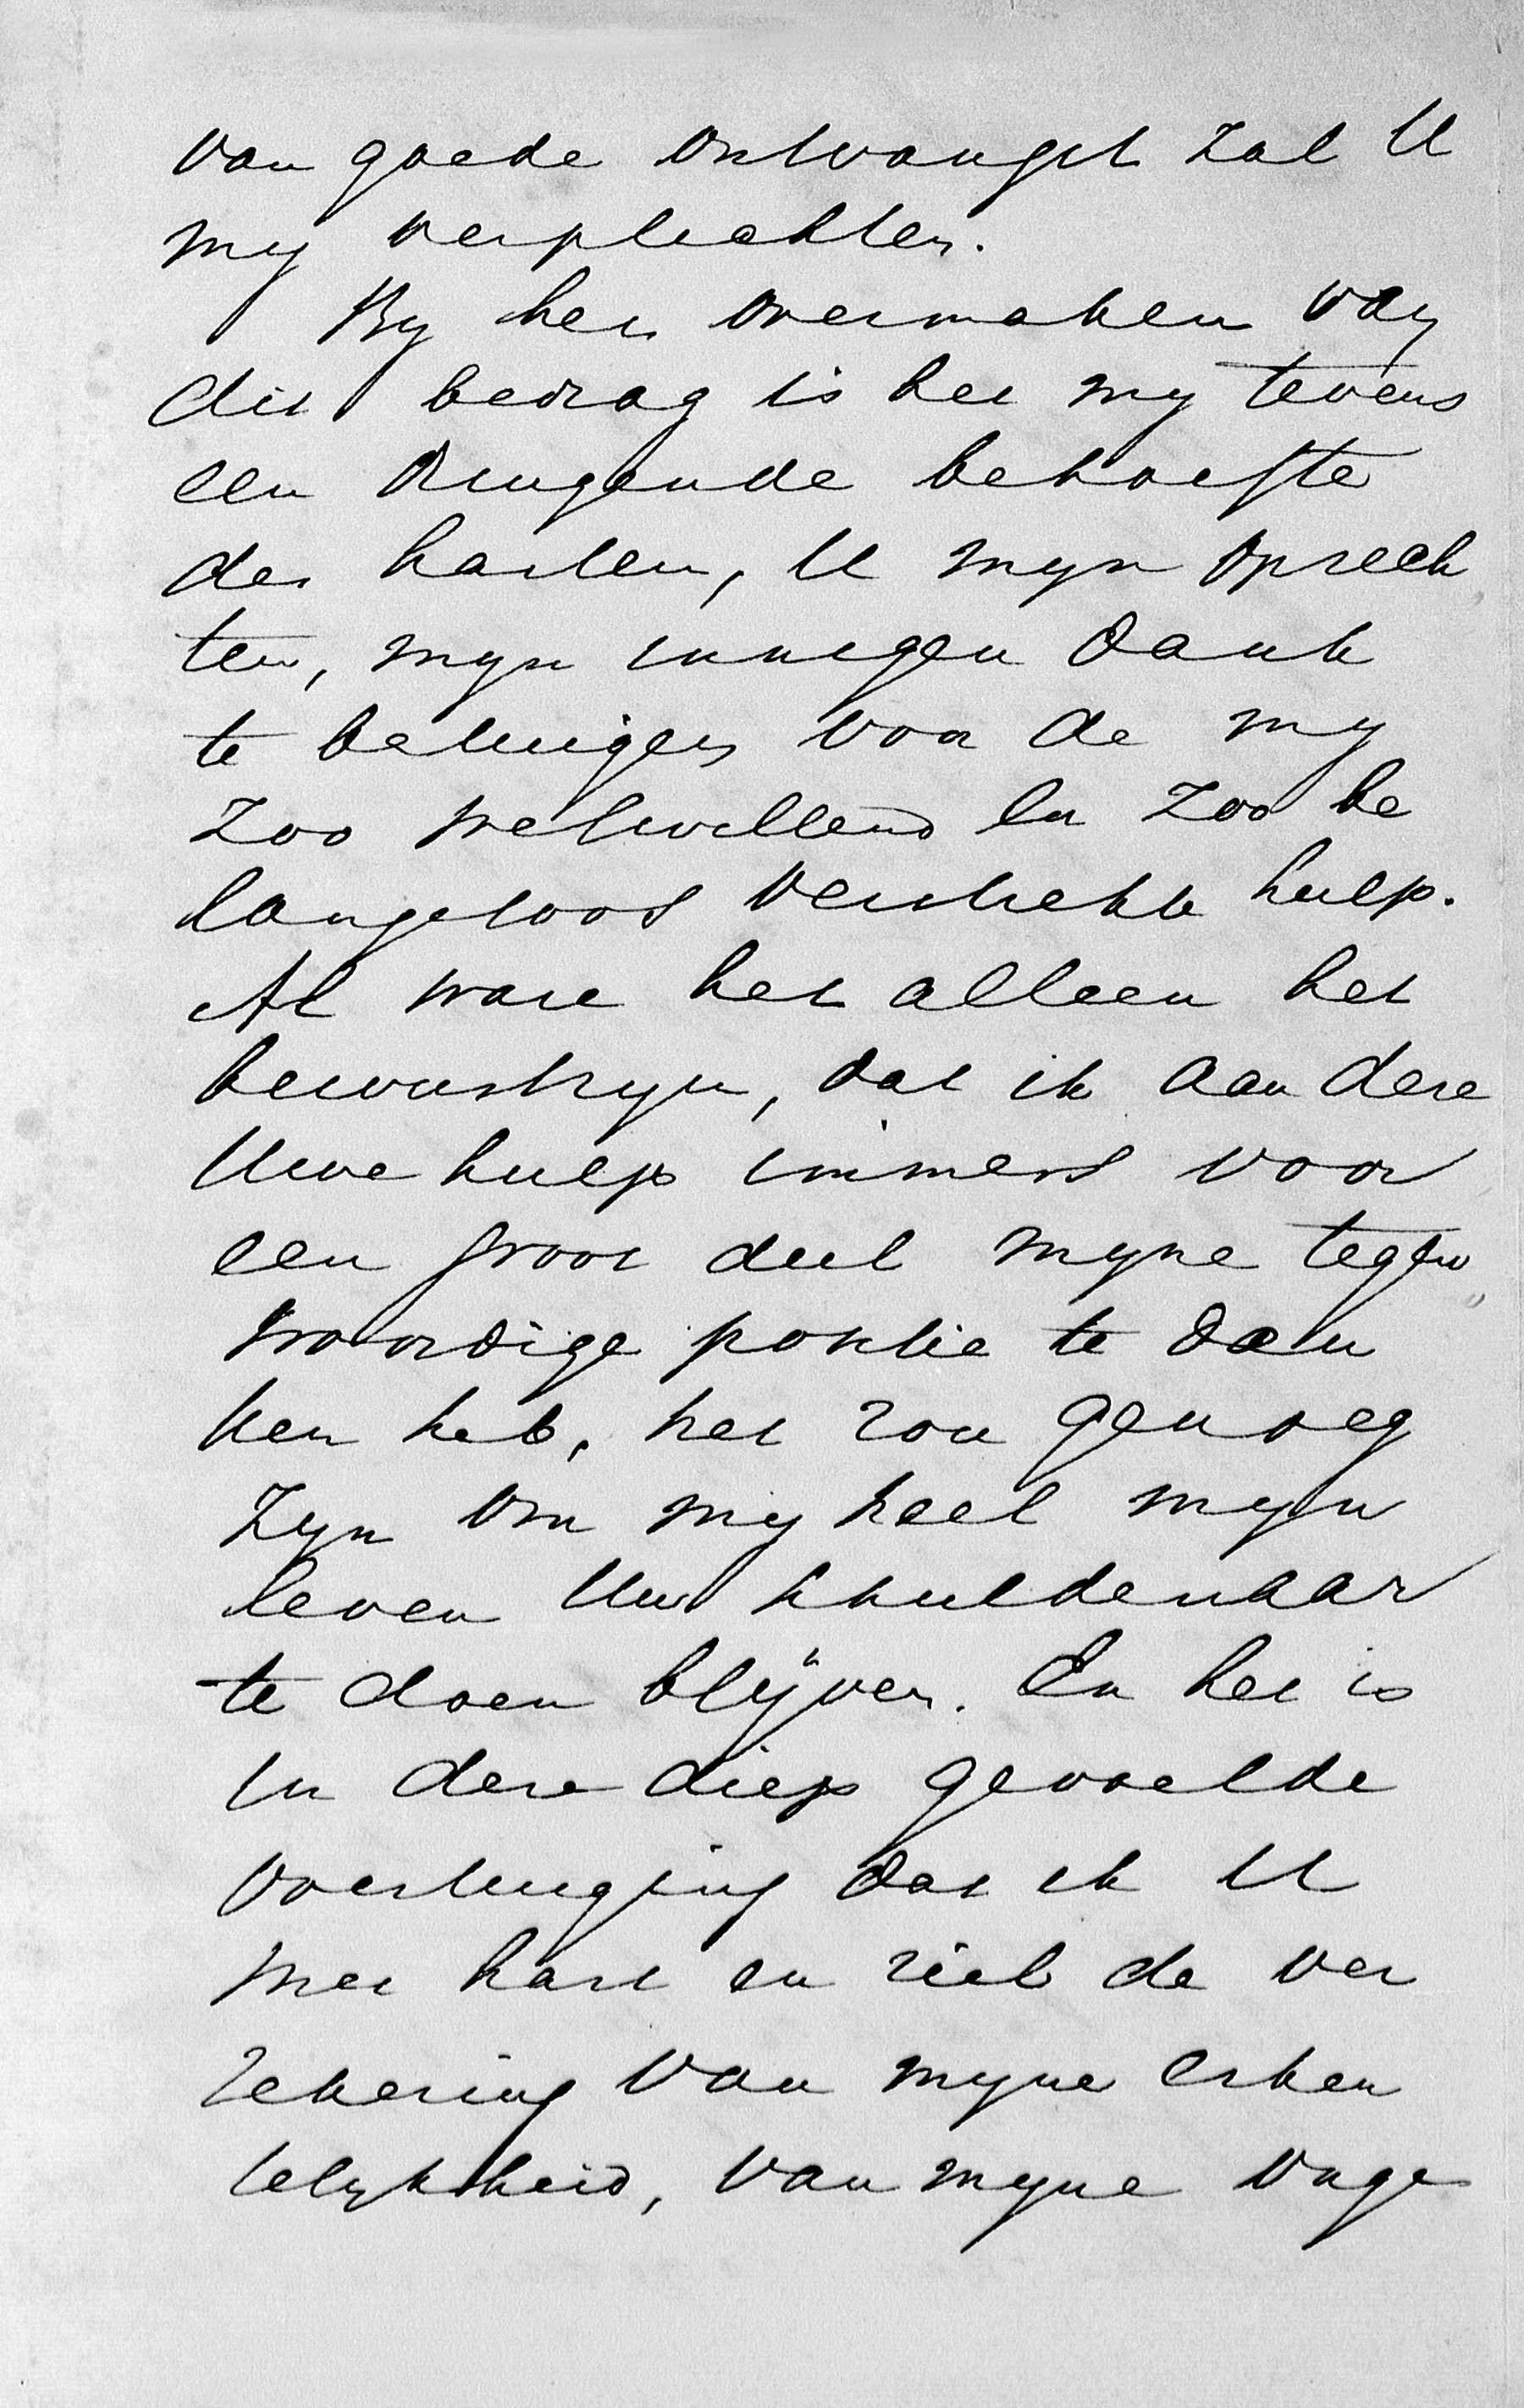 van goede ontvangst zal U
my verplichten.
By het overmaken van
dit bedrag is het my tevens
een dringende behoefte
des harten, U myn oprech
ten, myn innigen dank
te betuigen voor de my
zoo welwillend en zoo be
langeloos verstrekte hulp.
Al ware het alleen het
bewustzyn, dat ik aan deze
Uwe hulp immers voor
een groot deel myne tegen
woordige positie te dan
ken heb, het zou genoeg
zyn om my heel myn
leven Uw schuldenaar
te doen blijven. En het is
in deze diep gevoelde
overtuiging dat ik U
met hart en ziel de ver
zekering van myne erken
telykheid, van myne onge